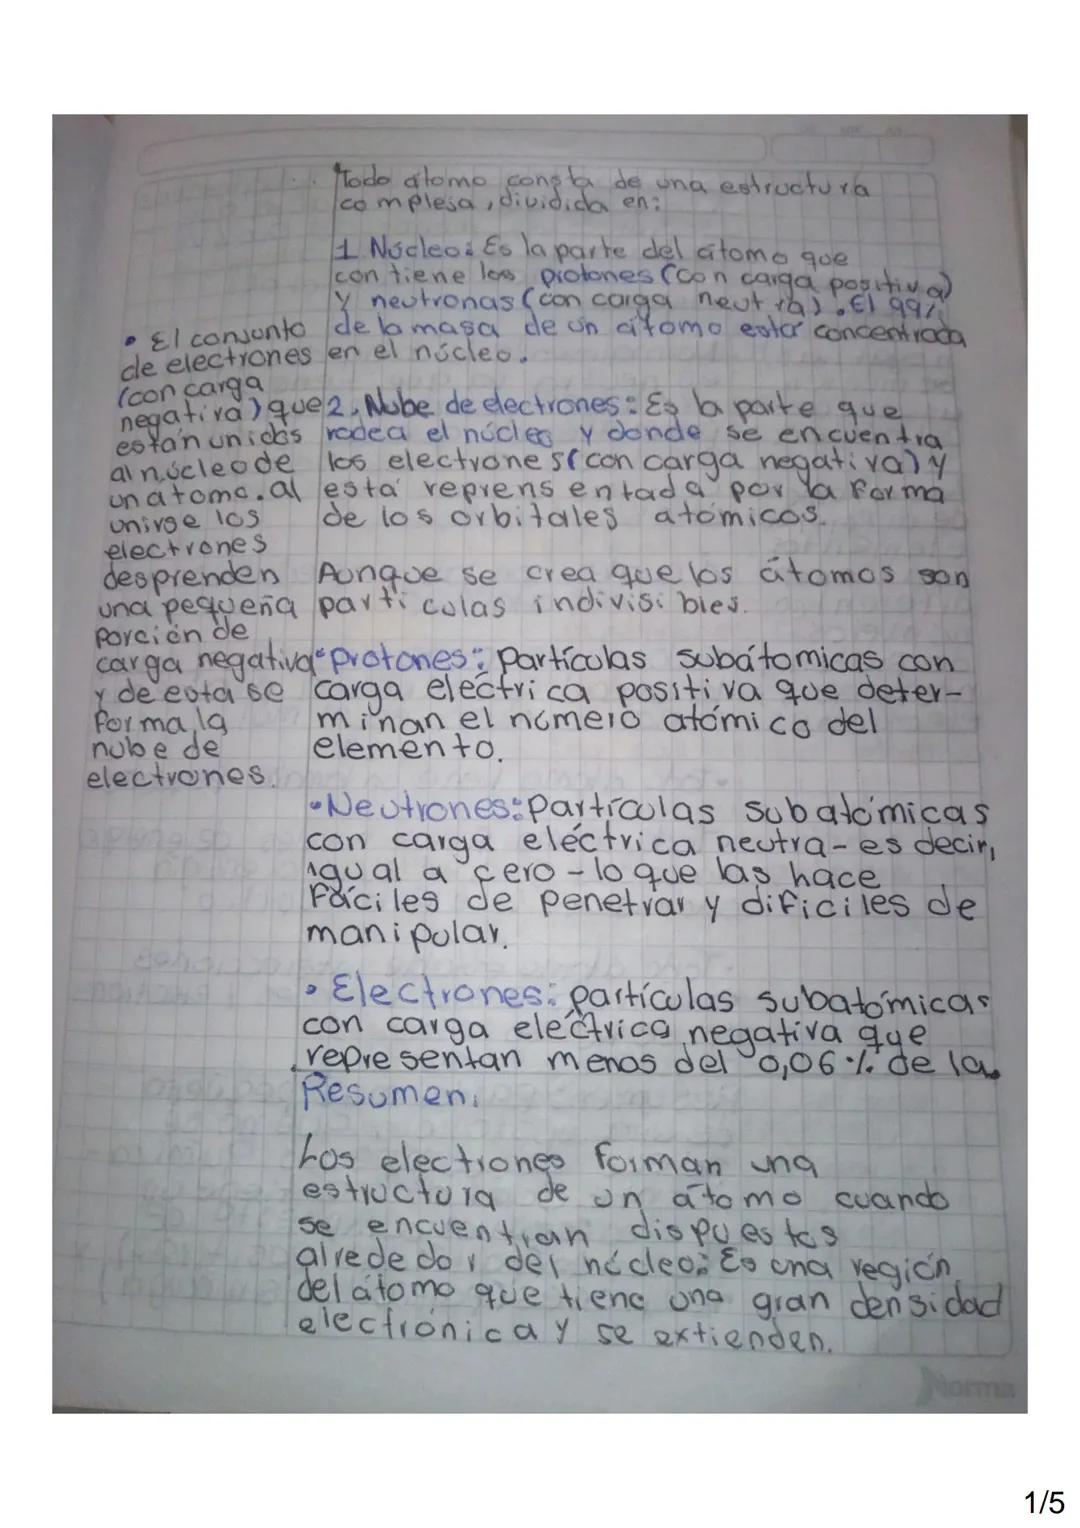 Todo átomo consta de una estructura
complesa, dividida en:
1 Núcleo: Es la parte del átomo que
contiene los protones (con carga positiva)
y neutronas (con carga neutra). El 99%
de la masa de un átomo está concentrada
en el núcleo.
2. Nube de electrones: Es la parte que
rodea el núcleo y donde se encuentra
los electrones (con carga negativa) y
está reprensentada por la forma
de los orbitales atómicos.
Aunque se crea que los átomos son
partículas indivisibles.
• El consunto
de electrones
(con carga
negativa) que
están unidos
al núcleo de
un atomo. al
unirse los
electrones
desprenden
una pequeña
porción de
carga negativa
y de esta se
forma la
nube de
electrones.
• protones: partículas subátomicas con
carga eléctrica positiva que deter-
minan el número atómico del
elemento.
• Neutrones: Partículas subatómicas
con carga eléctrica neutra - es decir,
igual a cero - lo que las hace
fáciles de penetrar y dificiles de
manipular.
• Electrones: partículas subatómicas
con carga eléctrica negativa que
representan menos del 0,06 % de la
Resumen:
Los electrones forman una
estructura de un átomo cuando
se encuentran dispuestos
alrededor del núcleo: Es una región
del átomo que tiene una gran densidad
electrónica y se extienden.
Norma
1/5